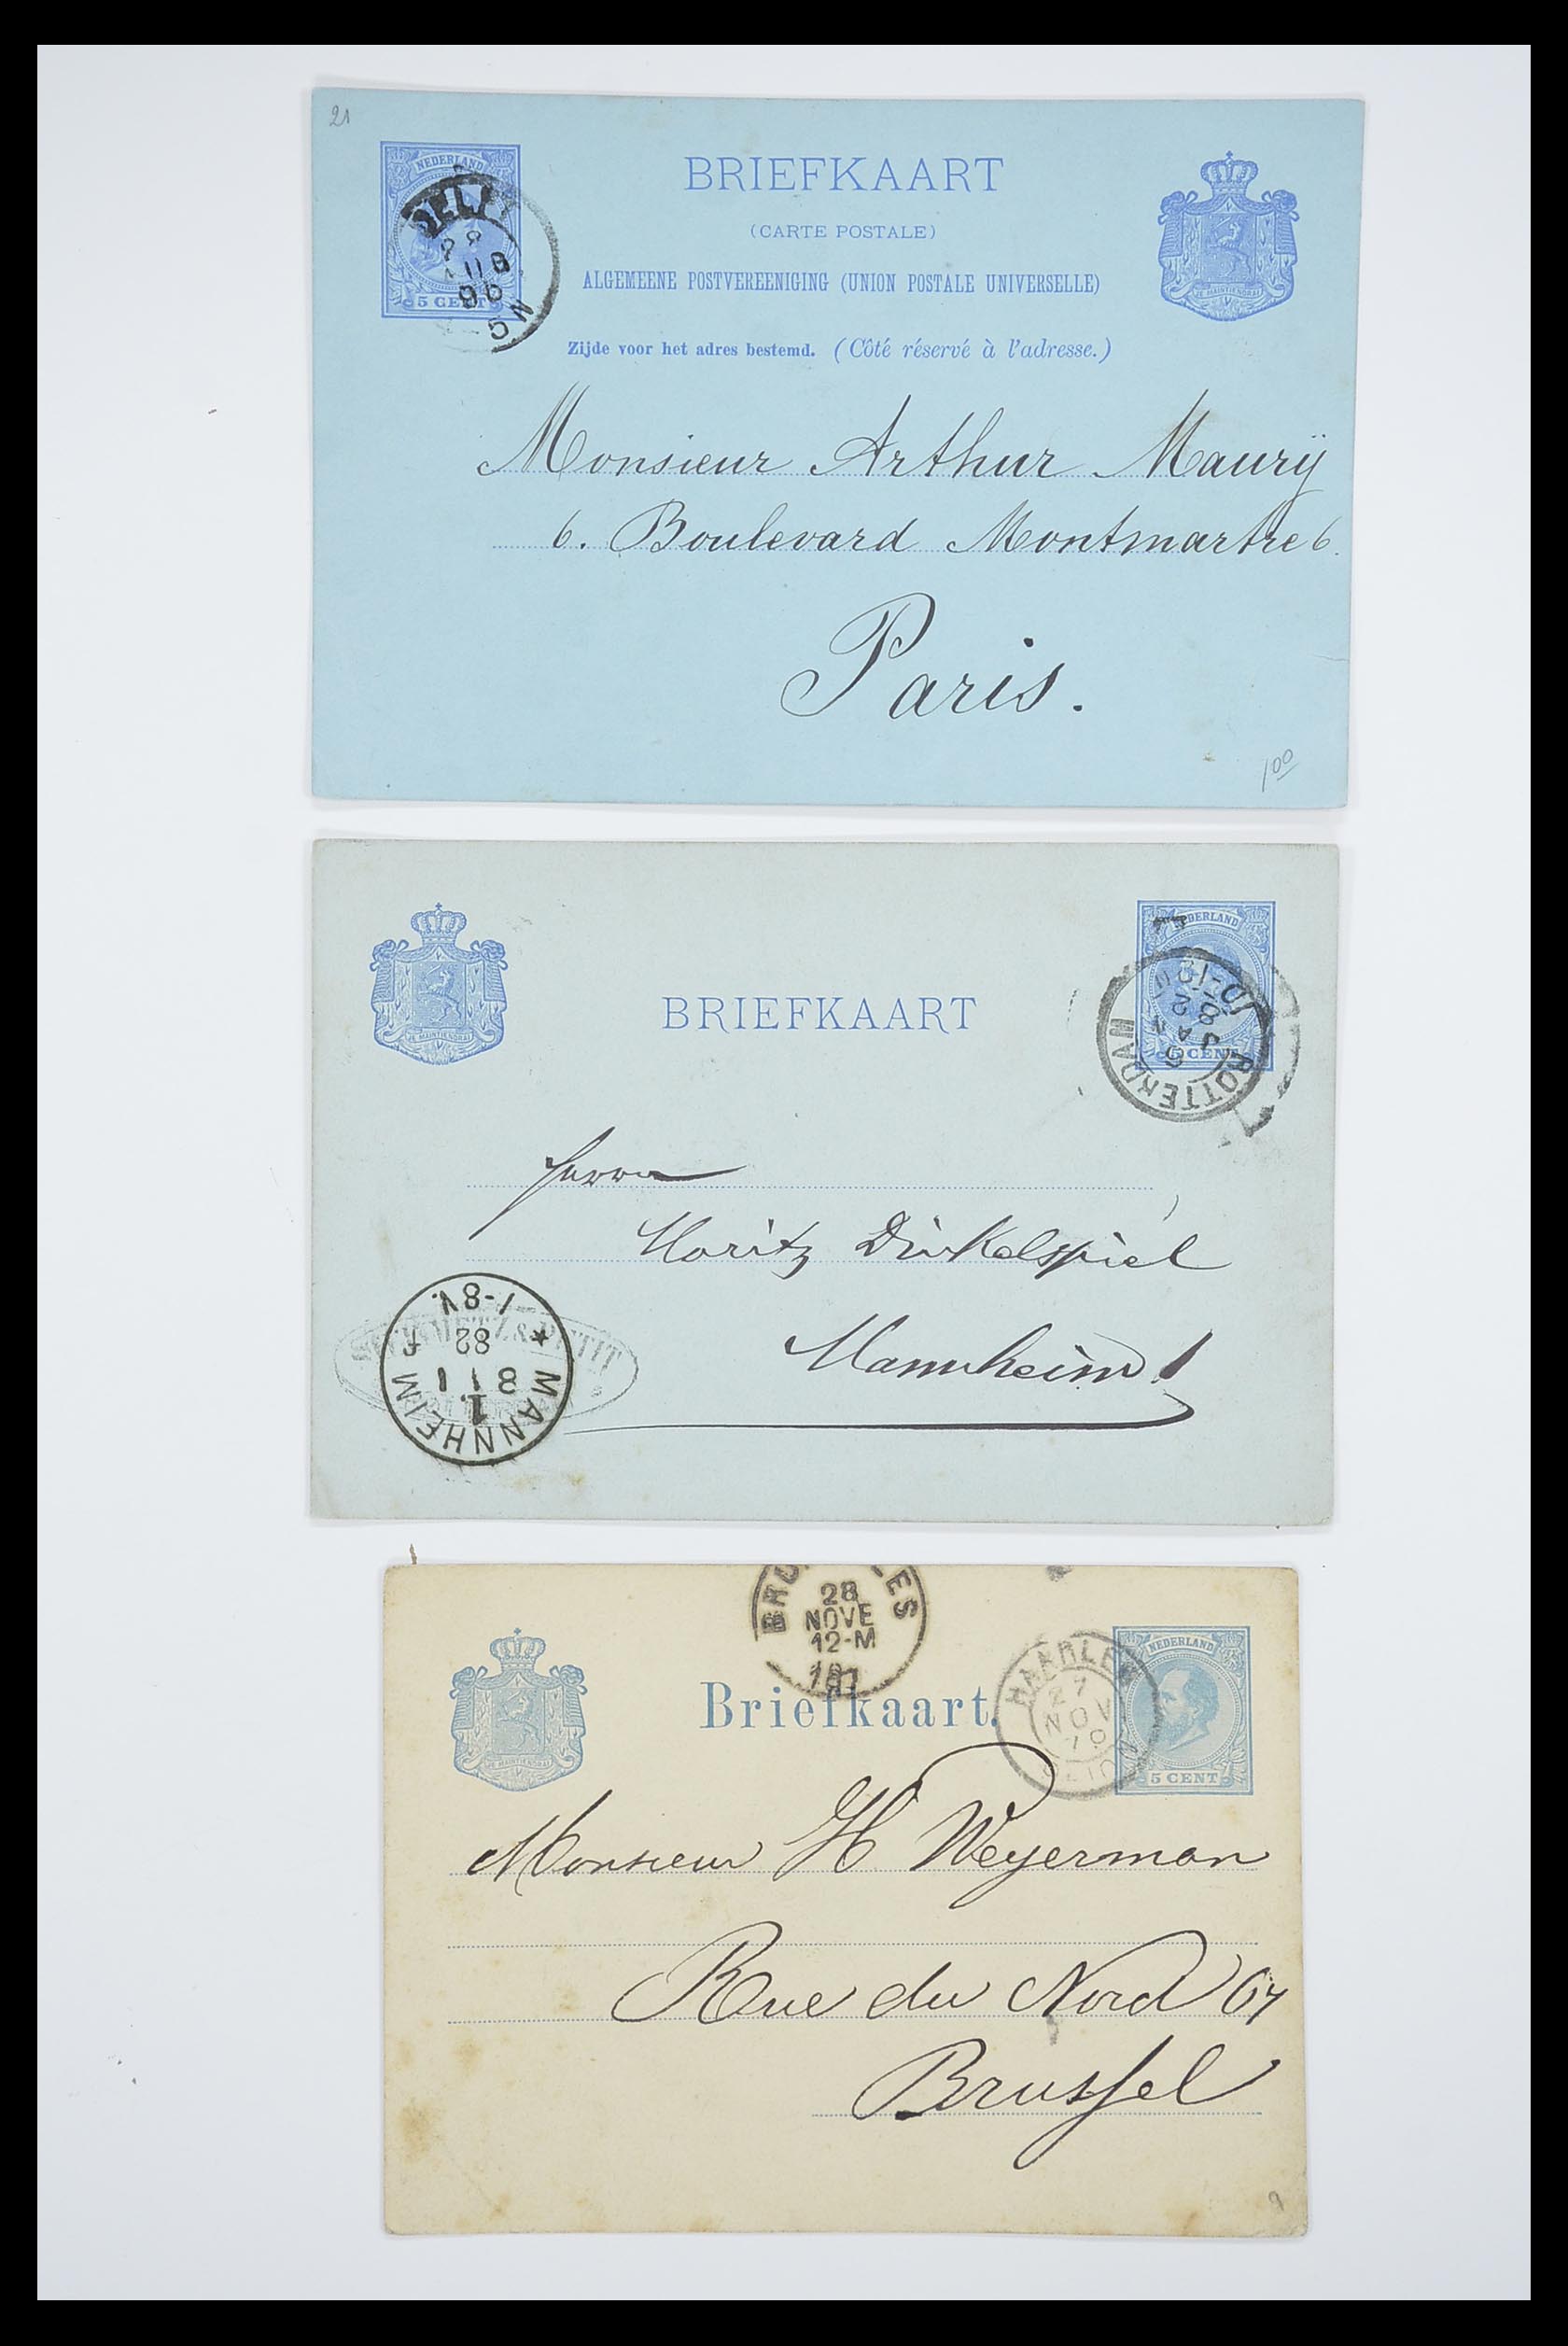 21
NEDERLAND
5 CENT
DELFT
96
5 N
BRIEFKAART
(CARTE POSTALE)
ALGEMEENE POSTVEREENIGING (UNION POSTALE UNIVERSELLE)
Zijde voor het adres bestemd. (Côté réservé à l'adresse.)
JE MAINTIENDRAI
Monsieur Arthur Maurÿ
6. Boulevard Montmartre 6.
Paris.
1 00
JE MAINTIENDRAI
BRIEFKAART
NEDERLAND
5 CENT
ROTTERDAM
JAN
82
Herrn
Moritz Dinkelspiel
Mannheim!
MANNHEIM
1.
8 1
82
1-8V.
BRUXELLES
28
NOVE
12-M
JE MAINTIENDRAI
Briefkaart.
HAARLEM
27
NOV
79
NEDERLAND
5 CENT
Monsieur H Weyerman
Rue du Nord 67
Brussel
9